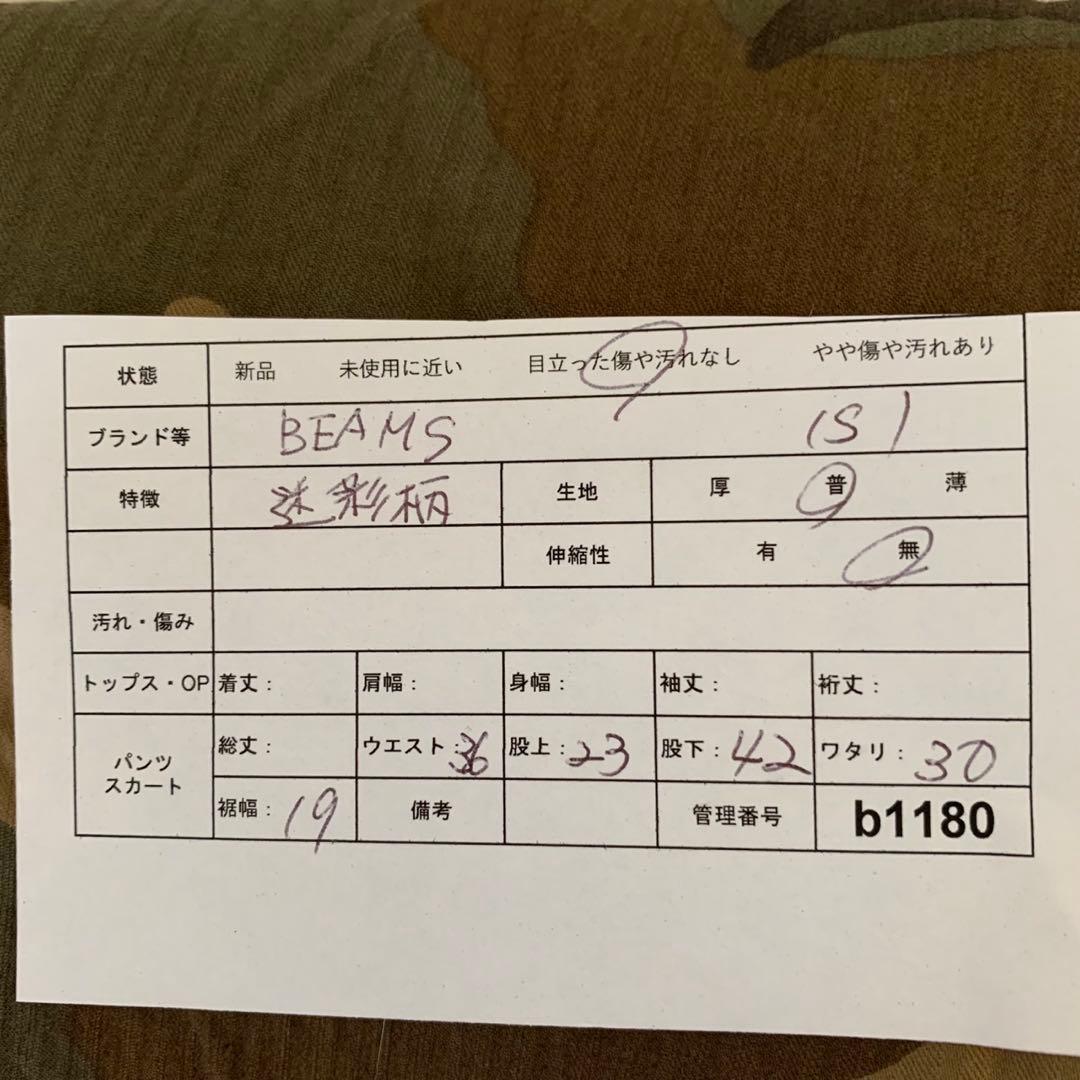 状態 新品 未使用に近い 目立った傷や汚れなし やや傷や汚れあり
ブランド等 BEAMS (S)
特徴 迷彩柄 生地 厚 普 薄
伸縮性 有 無
汚れ・傷み
トップス・OP 着丈: 肩幅: 身幅: 袖丈: 裄丈:
パンツ スカート 総丈: ウエスト:36 股上:23 股下:42 ワタリ:30
裾幅:19 備考 管理番号 b1180